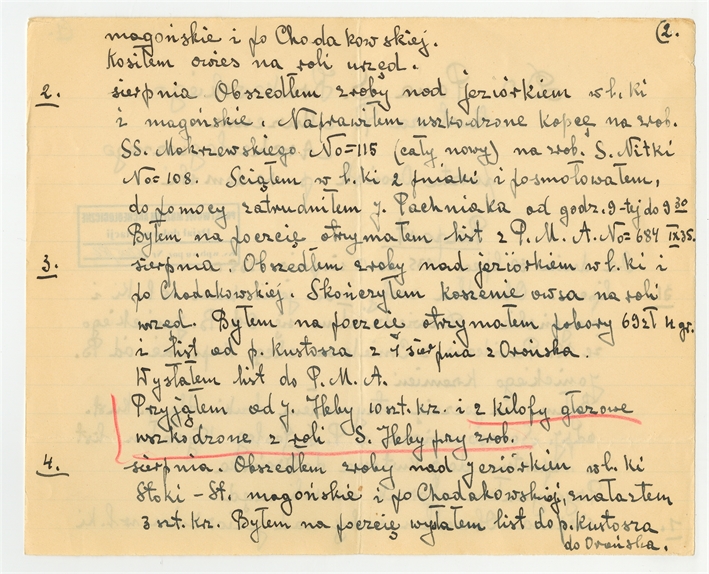 (2.
magońskie i po Chodakowskiej.
Kosiłem owies na roli urzęd.
2. sierpnia Obszedłem zroby nad jeziórkiem w l. ki
i magońskie. Naprawiłem uszkodzone kopcę na zrob.
SS. Mokrzewskiego No=115 (cały nowy) na zrob. S. Nitki
No=108. Sciąłem w l. ki 2 pniaki i posmołowałem,
do pomocy zatrudniłem J. Pachniaka od godz. 9-tej do 9 30
Byłem na poczcię otrymałem list z P. M. A. No=684 IX35.
3. sierpnia Obszedłem zroby nad jeziórkiem w l. ki i
po Chodakowskiéj. Skończyłem koszenie owsa na roli
urzęd. Byłem na poczcię otrzymałem pobory 69 zł 4 gr.
i list od p. kustosza z 1 sierpnia z Orońska.
Wysłałem list do P. M. A.
Pryjąłem od J. Heby 10 szt. kr. i 2 kilofy głazowe
uszkodzone z roli S. Heby pry zrob.
4. sierpnia. Obszedłem zroby nad jeziórkiem w l. ki
Stoki - St. magońskie i po Chodakowskiej, znalazłem
3 szt. kr. Byłem na poczcię wysłałem list do p. kustosza
do Orońska.